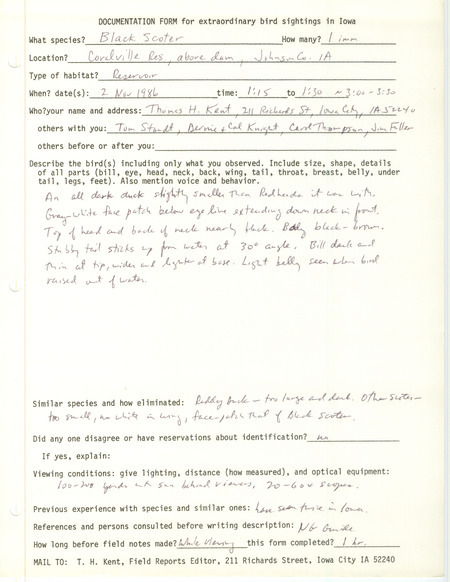 DOCUMENTATION FORM for extraordinary bird sightings in Iowa
What species? Black Scoter How many? 1 imm
Location? Coralville Res, above dam, Johnson Co. IA
Type of habitat? Reservoir
When? date(s): 2 Nov 1986 time: 1:15 to 1:30 ~ 3:00-3:30
Who?your name and address: Thomas H. Kent, 211 Richards St, Iowa City, IA 52240
others with you: Tom Staudt, Bernie & Cal Knight, Carol Thompson, Jim Fuller
others before or after you:
Describe the bird(s) including only what you observed. Include size, shape, details
of all parts (bill, eye, head, neck, back, wing, tail, throat, breast, belly, under
tail, legs, feet). Also mention voice and behavior.
An all dark duck slightly smaller than Redheads it was with.
Gray-white face patch below eye line extending down neck in front.
Top of head and back of neck nearly black. Body black-brown.
Stubby tail sticks up from water at 30° angle. Bill dark and
thin at tip, wider and lighter at base. Light belly seen when bird
raised out of water.
Similar species and how eliminated: Ruddy Duck - too large and dark. Other scoters -
too small, no white in wing, face-patch that of Black Scoter.
Did any one disagree or have reservations about identification? no
If yes, explain:
Viewing conditions: give lighting, distance (how measured), and optical equipment:
100-200 yards with sun behind viewers, 20-60x scopes.
Previous experience with species and similar ones: have seen twice in Iowa
References and persons consulted before writing description: NG Guide
How long before field notes made? while viewing this form completed? 1 hr.
MAIL TO: T. H. Kent, Field Reports Editor, 211 Richards Street, Iowa City IA 52240